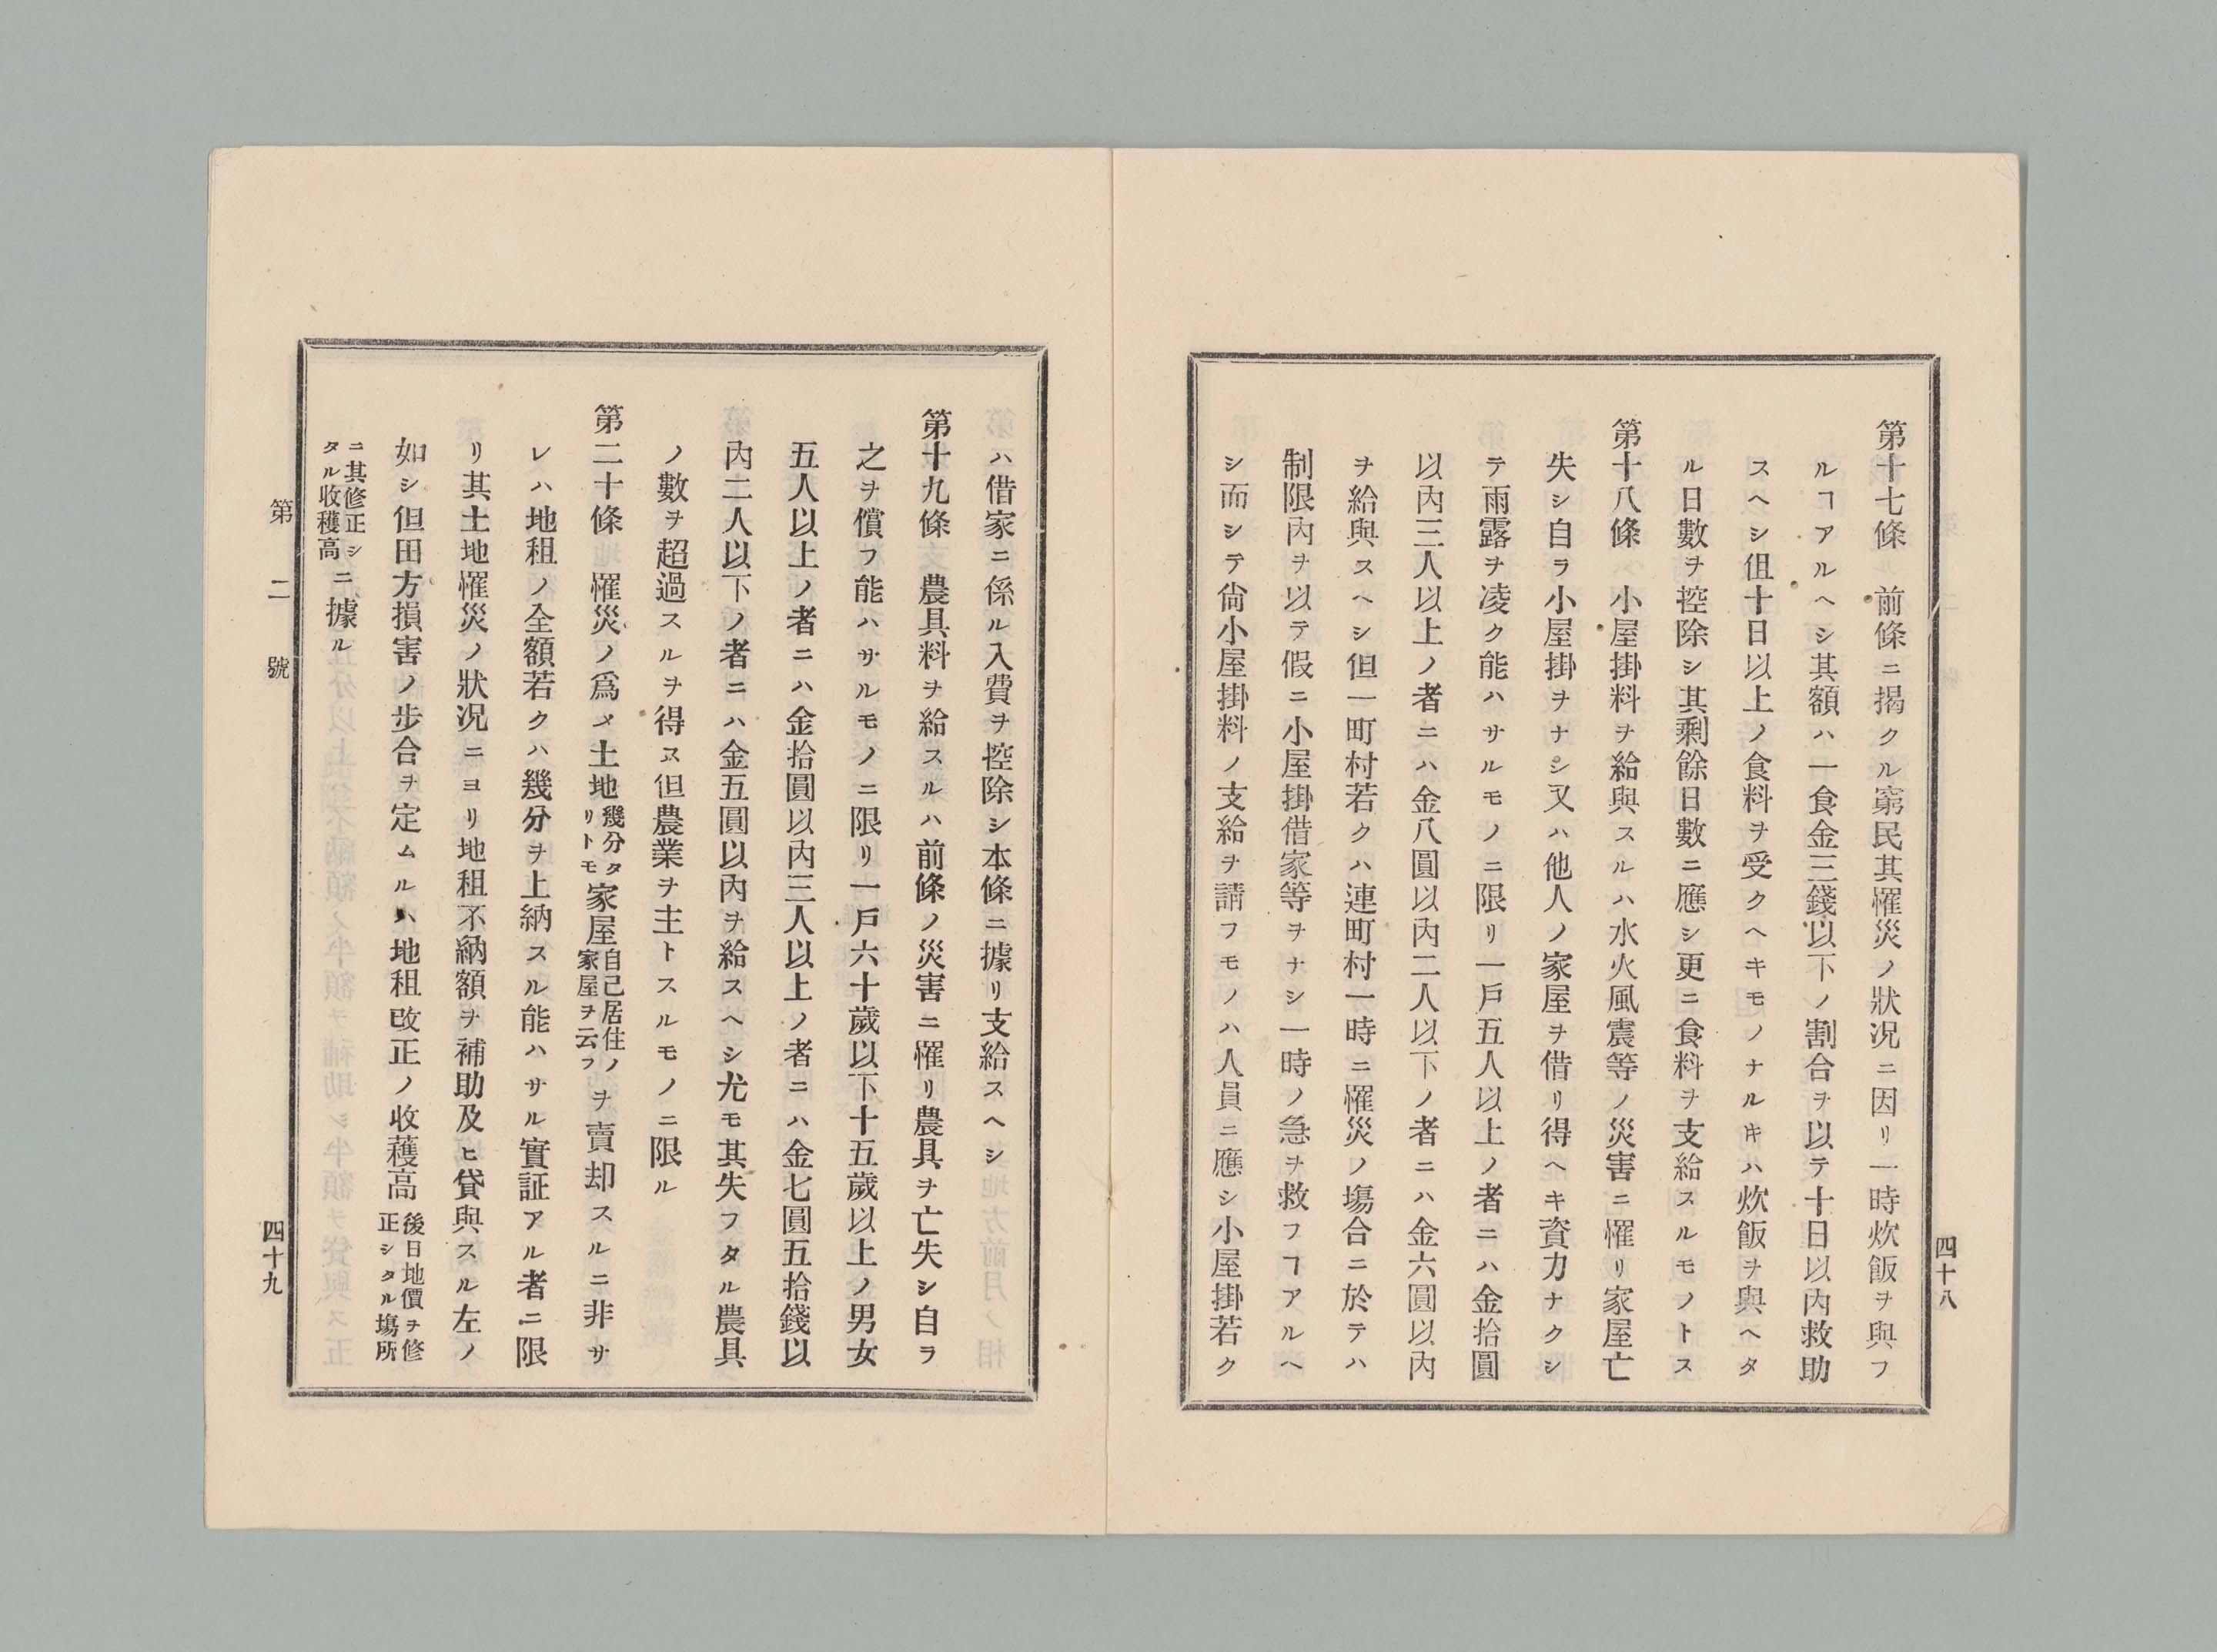 第十七條　前條ニ揭クル窮民其罹災ノ狀況ニ因リ一時炊飯ヲ與フ
ルヿアルヘシ其額ハ一食金三錢以下ノ割合ヲ以テ十日以內救助
スヘシ伹十日以上ノ食料ヲ受クヘキモノナルキハ炊飯ヲ與ヘタ
ル日數ヲ控除シ其剩餘日數ニ應シ更ニ食料ヲ支給スルモノトス
第十八條　小屋掛料ヲ給與スルハ水火風震等ノ災害ニ罹リ家屋亡
失シ自ラ小屋掛ヲナシ又ハ他人ノ家屋ヲ借リ得ヘキ資力ナクシ
テ雨露ヲ凌ク能ハサルモノニ限リ一戶五人以上ノ者ニハ金拾圓
以內三人以上ノ者ニハ金八圓以內二人以下ノ者ニハ金六圓以內
ヲ給與スヘシ但一町村若クハ連町村一時ニ罹災ノ塲合ニ於テハ
制限內ヲ以テ假ニ小屋掛借家等ヲナシ一時ノ急ヲ救フヿアルヘ
シ而シテ尙小屋掛料ノ支給ヲ請フモノハ人員ニ應シ小屋掛若ク
四十八
ハ借家ニ係ル入費ヲ控除シ本條ニ據リ支給スヘシ
第十九條　農具料ヲ給スルハ前條ノ災害ニ罹リ農具ヲ亡失シ自ラ
之ヲ償フ能ハサルモノニ限リ一戶六十歲以下十五歲以上ノ男女
五人以上ノ者ニハ金拾圓以內三人以上ノ者ニハ金七圓五拾錢以
內二人以下ノ者ニハ金五圓以內ヲ給スヘシ尤モ其失フタル農具
ノ數ヲ超過スルヲ得ス但農業ヲ主トスルモノニ限ル
第二十條　罹災ノ爲メ土地幾分タリトモ家屋自己居住ノ家屋ヲ云フヲ賣却スルニ非サ
レハ地租ノ全額若クハ幾分ヲ上納スル能ハサル實証アル者ニ限
リ其土地罹災ノ狀況ニヨリ地租不納額ヲ補助及ヒ貸與スル左ノ
如シ但田方損害ノ步合ヲ定ムルハ地租改正ノ收蒦高後日地價ヲ修正シタル塲所
ニ其修正シタル收穫高ニ據ル
第二號
四十九